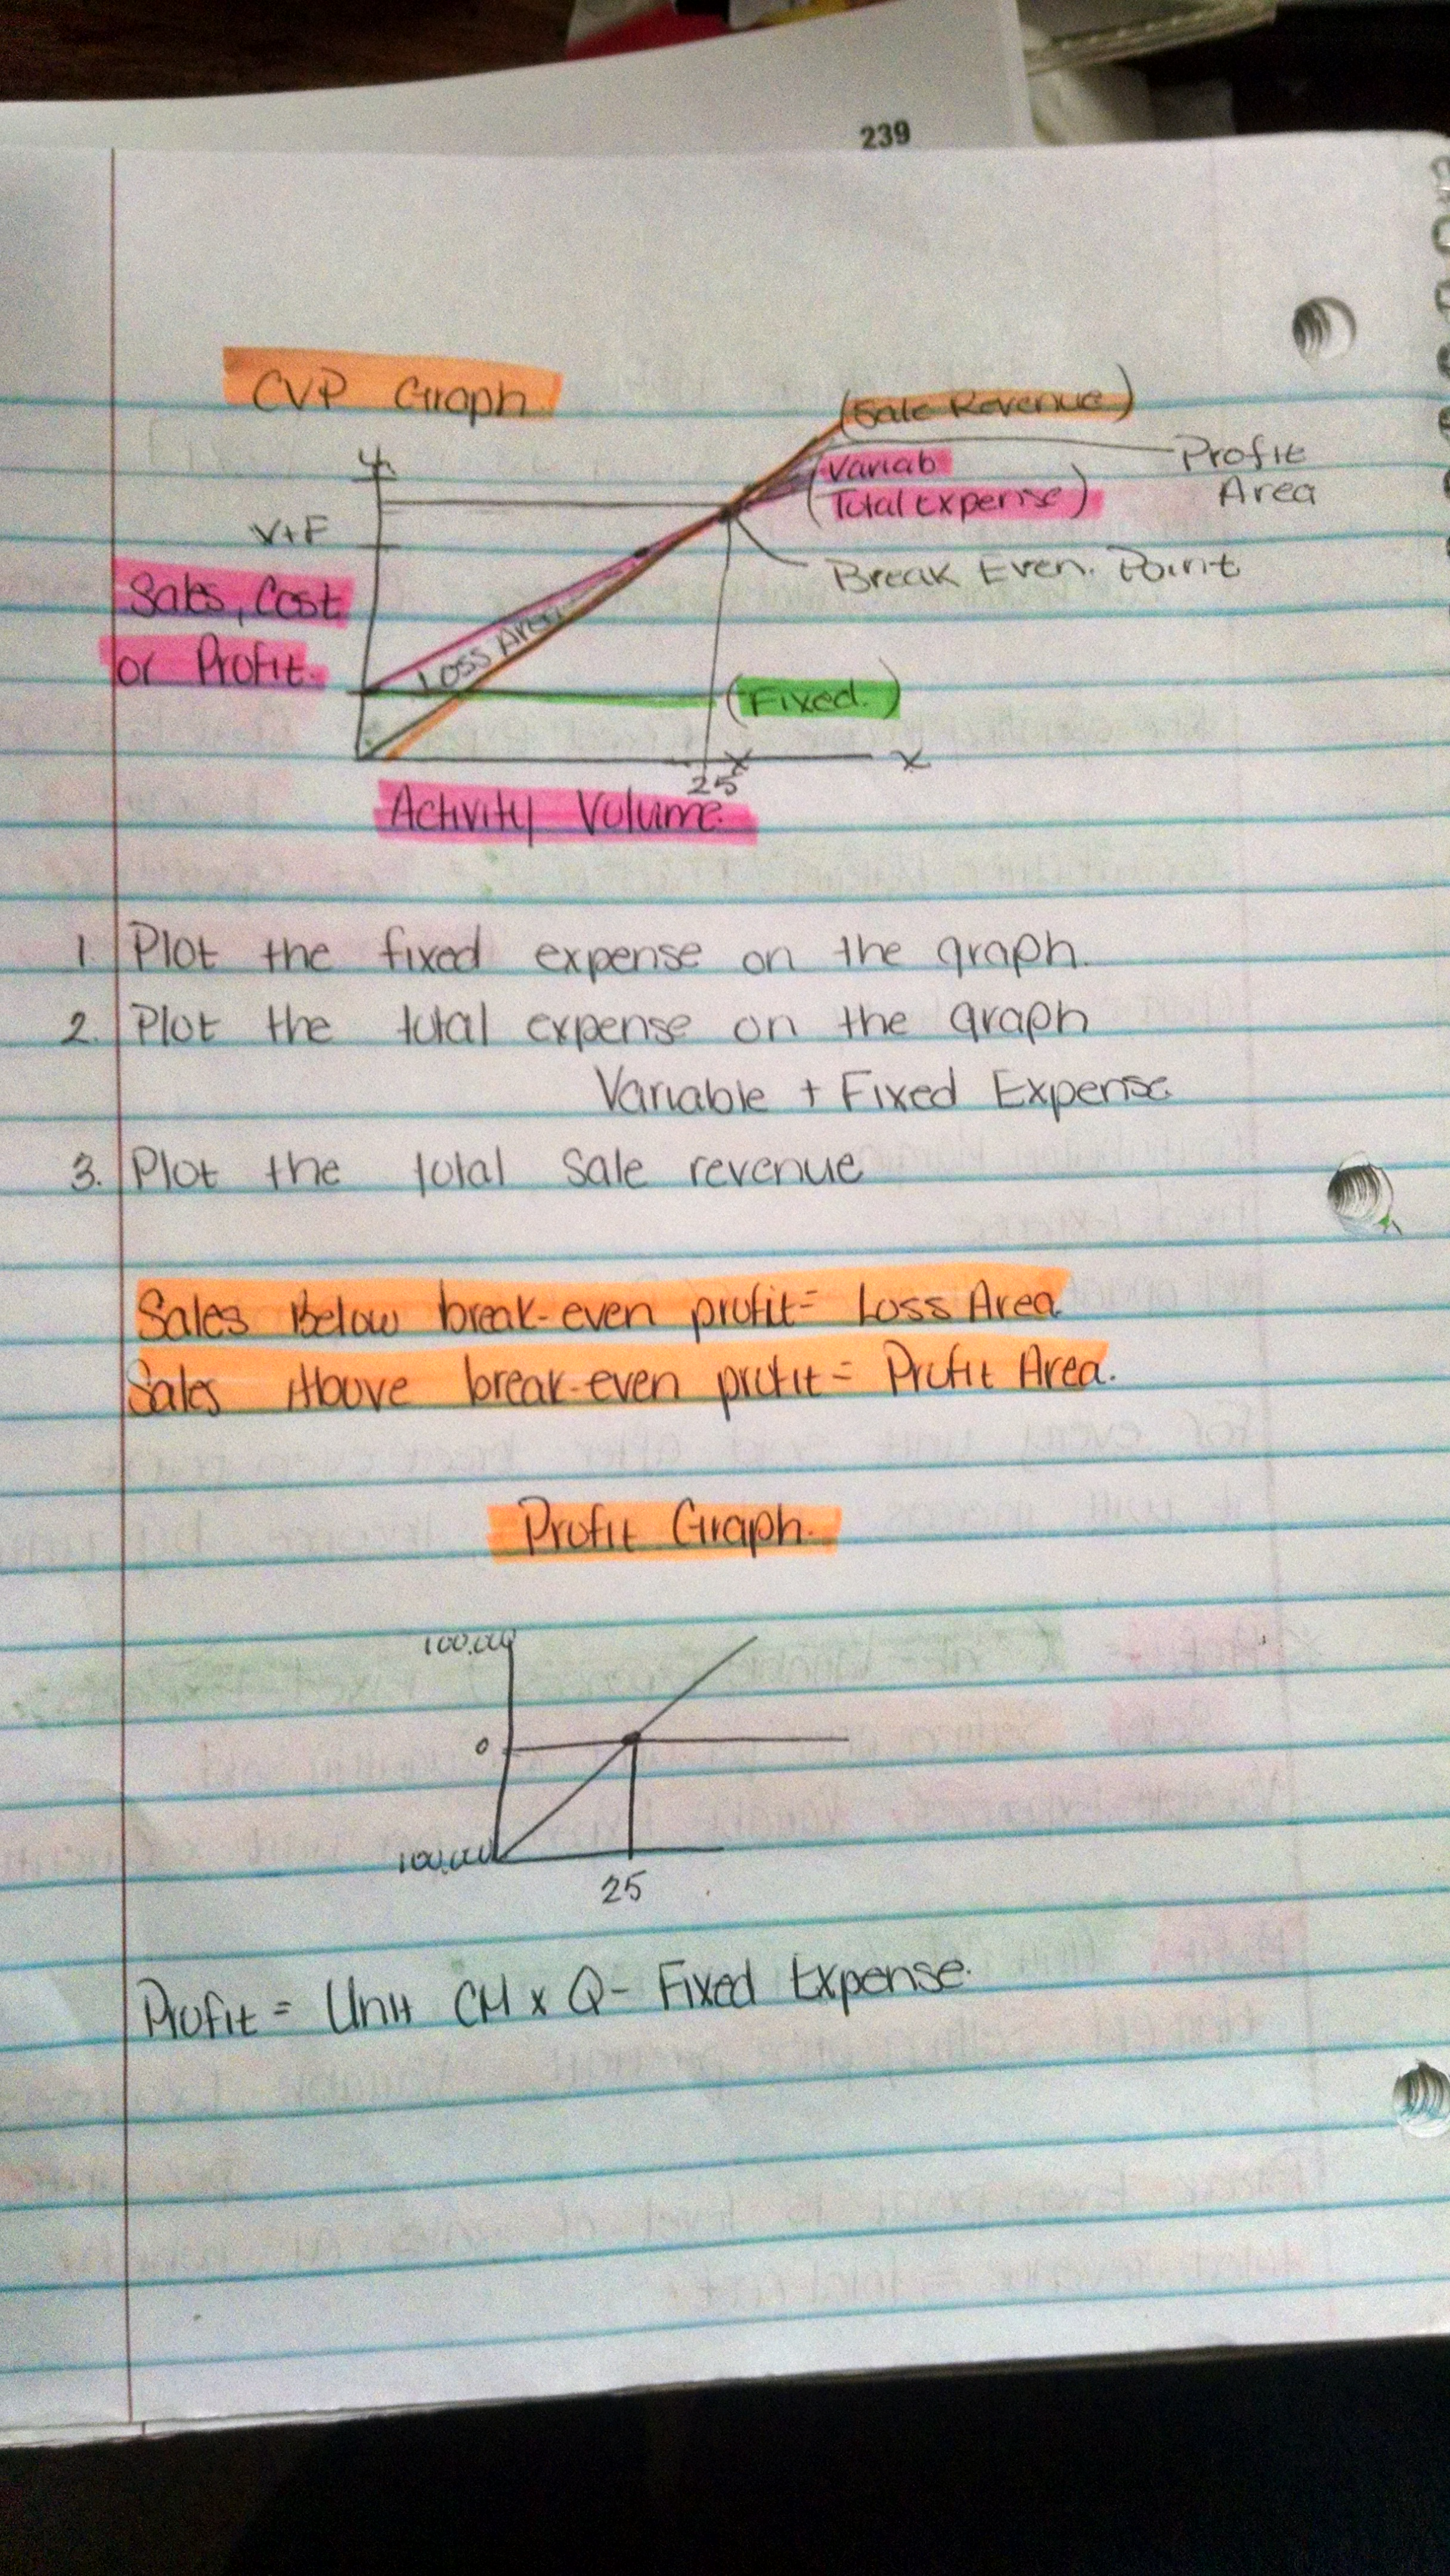 239
CVP Graph
(Sale Revenue)
Y
Variab
Profit
(Total Expense)
Area
V+F
Break Even. Point
Sales, Cost
Loss Area
or Profit.
(Fixed.)
x
x
25
Activity Volume.
1. Plot the fixed expense on the graph.
2. Plot the total expense on the graph
Variable + Fixed Expense
3. Plot the total Sale revenue
Sales Below break-even profit = Loss Area
Sales Above break-even profit = Profit Area.
Profit Graph.
100,000
0
100,000
25
Profit = Unit CM x Q - Fixed Expense.